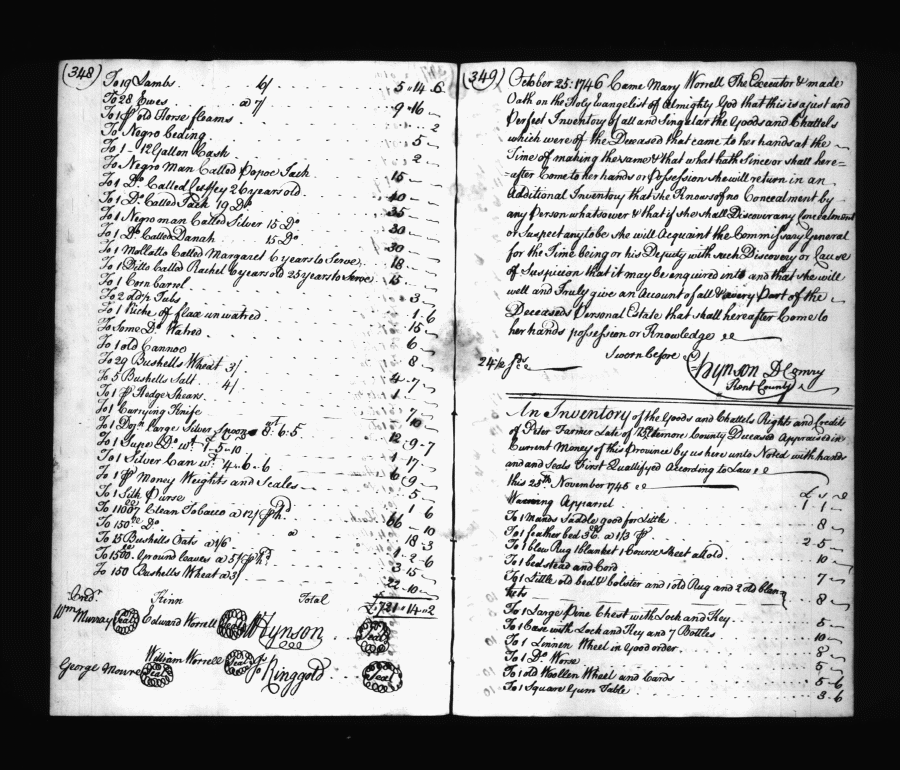 (348)
To 19 Lambs 6/ 5 " 14 . 6
To 28 Ewes a 7/ 9 - 16 -
To 1 pr old Horse fleams . . 2
To Negro beding . 5 -
To 1 - 12 Gallon Cask 2 -
To Negro Man Called Popoe Jack 15 -
To 1 Do. Called Cuffey 26 years old 40 -
To 1 Do Called Jack 19 Do 35 -
To 1 Negroman Called Silver 15 Do 30 -
To 1 Do Called Danah 15 Do 30 -
To 1 Mollatto Called Margaret 6 years to Serve 18 -
To 1 Ditto Called Rachel 6 years old 25 years to Serve 15 -
To 1 Corn barrel
To 2 old Tubs 3 -
To 1 of flax unwatred 1 - 6
To Some Do. Watred 15 -
To 1 old Cannoo 6 -
To 29 Bushells Wheat 3/ 8 -
To 5 Bushells Salt 4/ 4 - 7 -
To 1 pr Hedge Shears 1 -
To 1 Currying Knife 7
To 1 Dozn Large Silver Spoons wt. 6 . 5 10
To 1 Do. wt. 1 - 5 - 10 12 - 9 - 7
To 1 Silver Can wt. 4 - 6 - 6 1 - 17 -
To 1 pr Money Weights and Scales
To 1 Silk Purse 5
To 11007 Clean Tobacco a 12/ 1 6
To 150 Do a 66 - 10
To 15 Bushells Oats a 1/6 18 - 3
To 1500 Ground leaves a 5/ 1 - 2 - 6
To 150 Bushells Wheat a 3/ 3 - 15 -
22 - 10 -
Credr. Kinn Total £ 721 " 14 " 2
Wm Murray Seal Edward Worrell Seal Hynson Seal
George Moore Seal William Worrell Seal Ringgold Seal
(349)
October 25: 1746 Came Mary Worrell The Executor & made
Oath on the Holy Evangelist of Almighty God that this is a just and
Perfect Inventory of all and Singular the Goods and Chattels
which were of the Deceased that came to her hands at the
Time of making the same & that what hath Since or shall here=
=after Come to her hands or Possession she will return in an
Additional Inventory that She Knows of no Concealment by
any Person whatsoever & that if she shall Discover any Concealment
or Suspect any to be she will Acquaint the Commissary General
for the Time being or his Deputy with such Discovery or Cause
of Suspicion that it may be inquired into and that she will
well and Truly give an Account of all & every Part of the
Deceaseds Personal Estate that shall hereafter Come to
her hands possession or Knowledge
Sworn before
Hynson D Comry
Kent County
An Inventory of the Goods and Chattels Rights and Credits
of Peter Farmer Late of Baltemore County Deceased Appraised in
Current Money of this Province by us here unto Noted with hands
and and Seals First Qualifyed According to Law
this 25th November 1745 £ s d
Wearing Apparel 1 - 1 -
To 1 Mands Saddle good for Little 8 -
To 1 feather bed 36 a 1/3 2 - 5 -
To 1 blew Rug 1 blanket 1 Course sheet all old 10 -
To 1 bed stead and Cord 7 -
To 1 Little old bed & bolster and 1 old Rug and 2 old blan-
kets 8 -
To 1 Large Pine Chest with Lock and Key 5 -
To 1 Case with Lock and Key and 7 Bottles 10 -
To 1 Linnen Wheel in Good order 8 -
To 1 Do. Worse 5 -
To 1 old Woollen Wheel and Cards 5 - 6
To 1 Square Gum Table 3 - 6